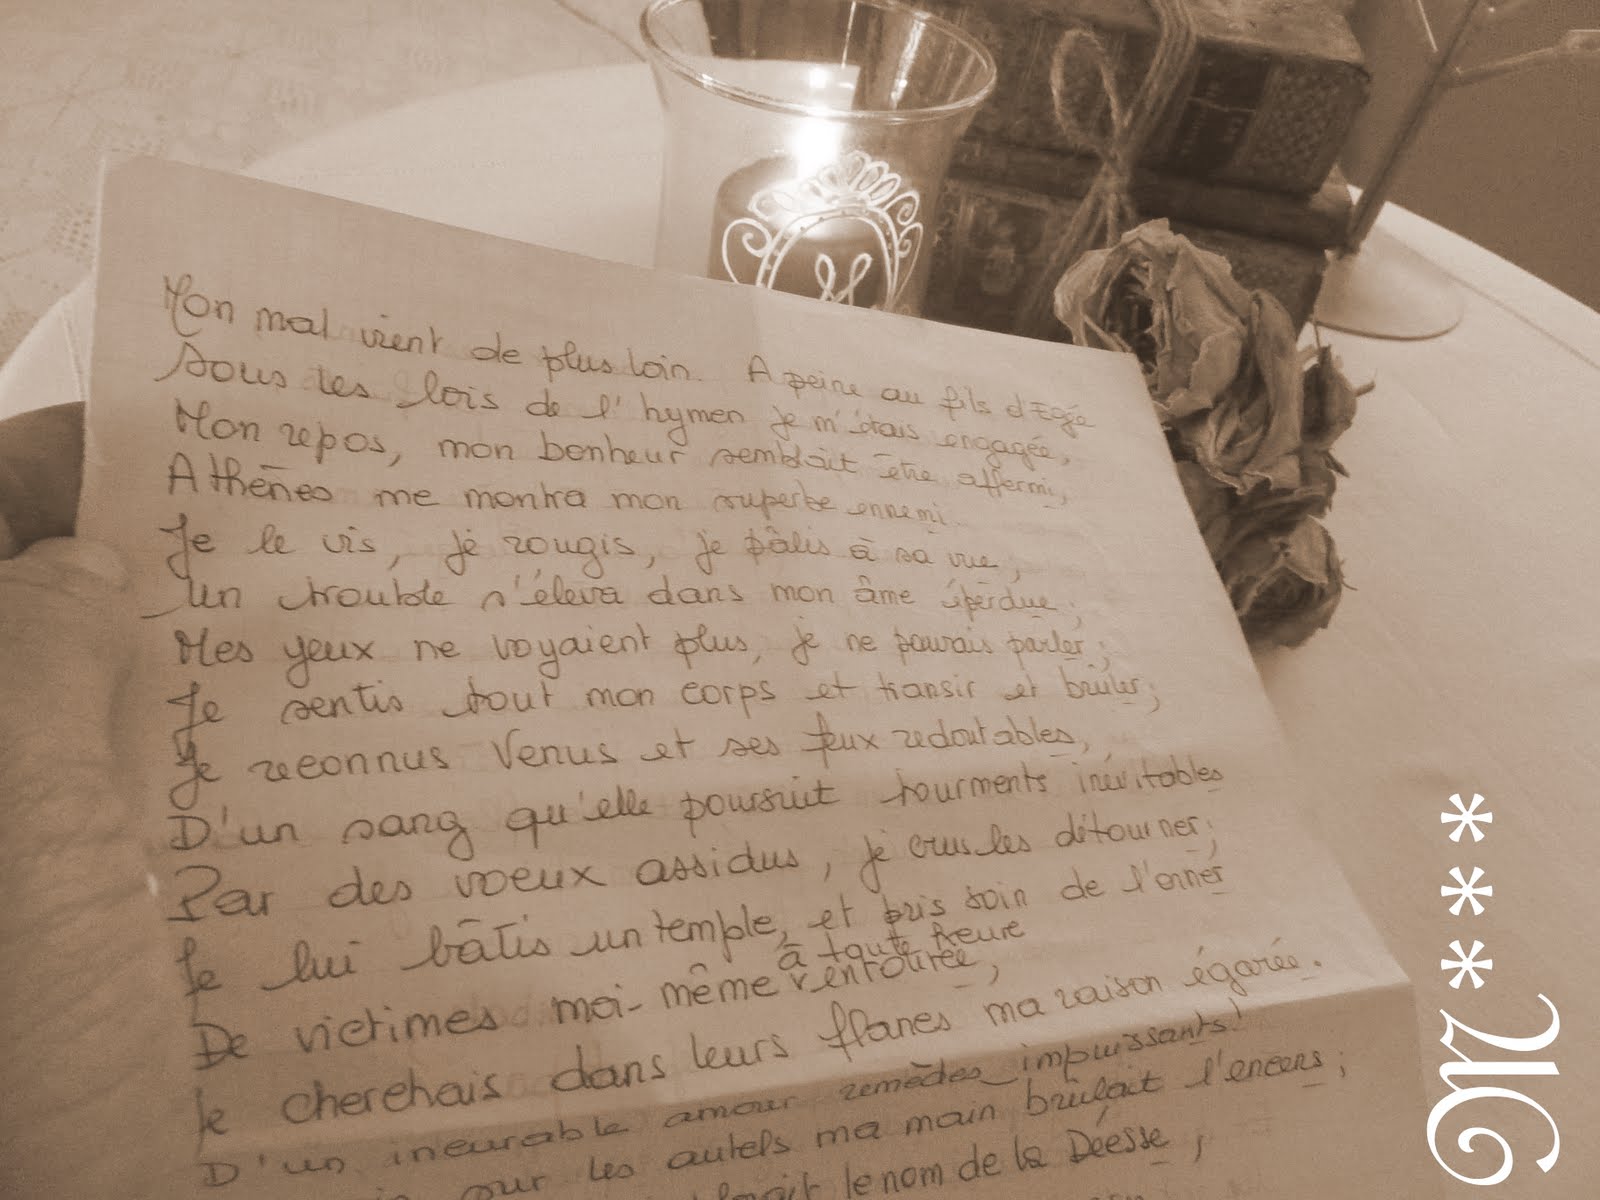 Mon mal vient de plus loin. A peine au fils d'Egée
Sous les lois de l'hymen je m'étais engagée,
Mon repos, mon bonheur semblait être affermi,
Athènes me montra mon superbe ennemi.
Je le vis, je rougis, je pâlis à sa vue,
Un trouble s'éleva dans mon âme éperdue;
Mes yeux ne voyaient plus, je ne pouvais parler;
Je sentis tout mon corps et transir et brûler;
Je reconnus Venus et ses feux redoutables,
D'un sang qu'elle poursuit tourments inévitables
Par des voeux assidus, je crus les détourner;
Je lui bâtis un temple, et pris soin de l'orner
De victimes moi-même à toute heure entourée,
Je cherchais dans leurs flancs ma raison égarée.
D'un incurable amour remèdes impuissants!
sur les autels ma main brûlait l'encens;
le nom de la Déesse,
M
***